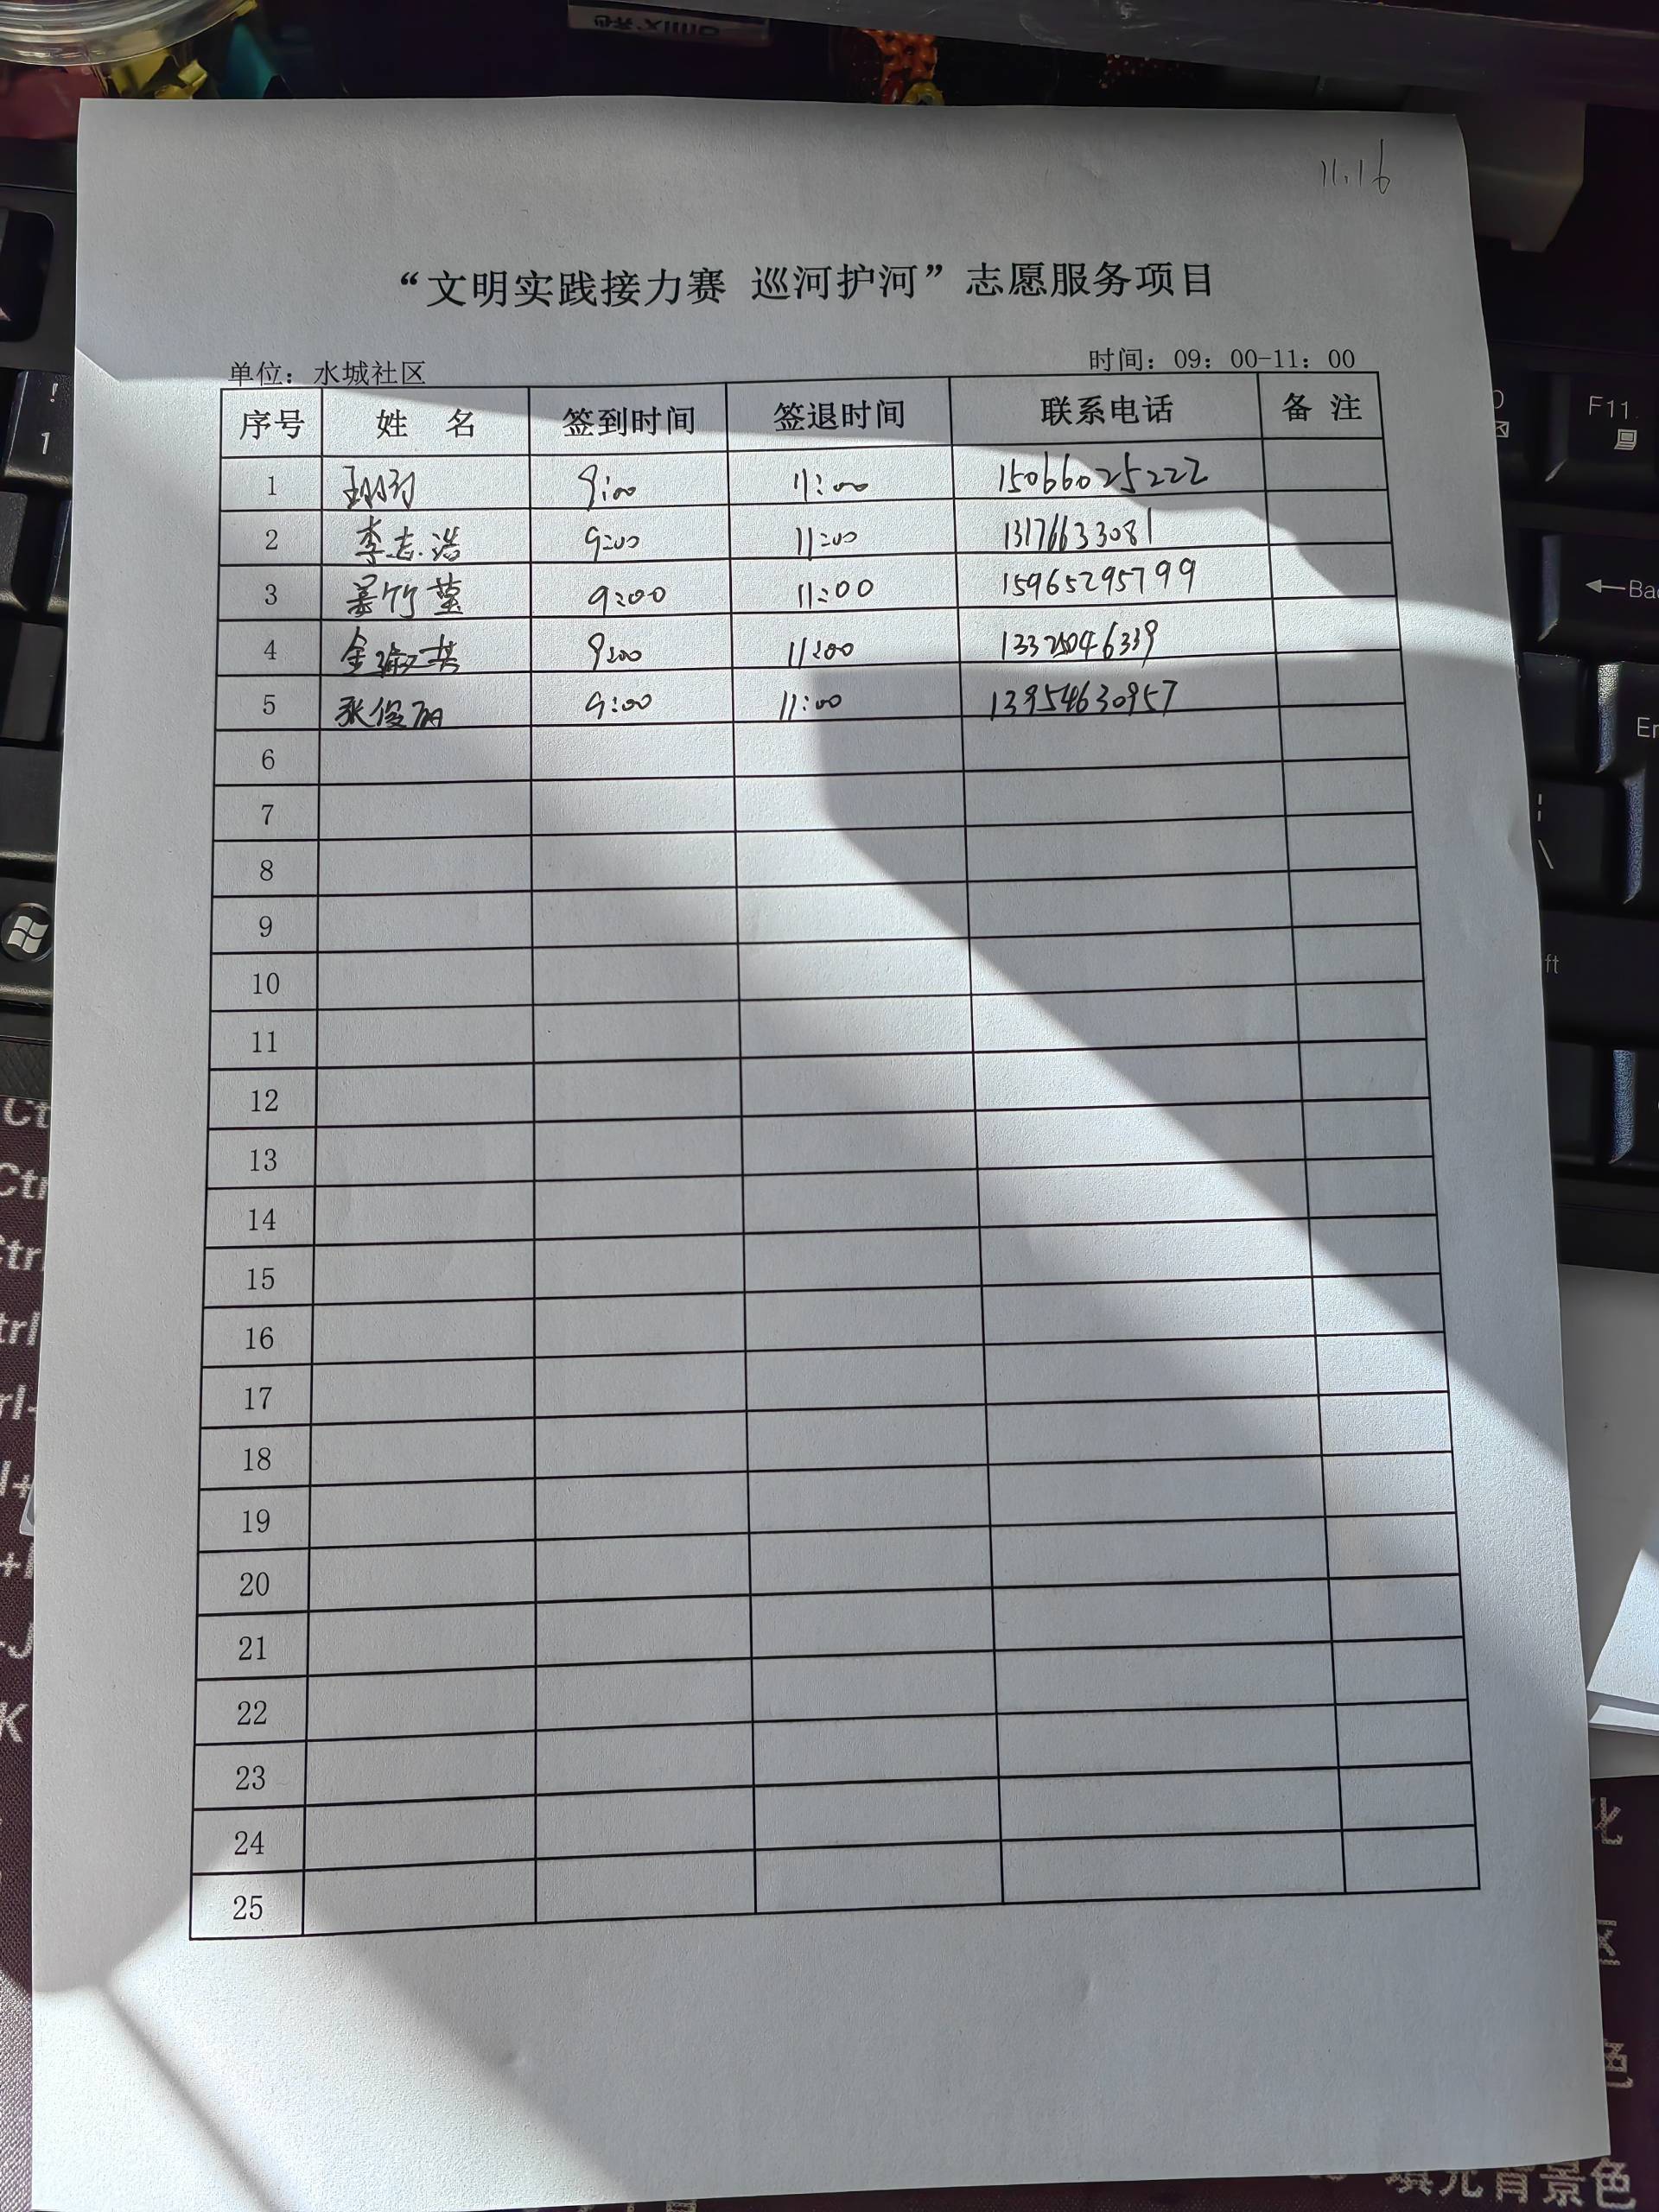 11.16
“文明实践接力赛 巡河护河”志愿服务项目
单位：水城社区 时间：09：00-11：00
序号 姓 名 签到时间 签退时间 联系电话 备 注
1 9:00 11:00 15066025222
2 李志浩 9:00 11:00 13176633081
3 晏竹莹 9:00 11:00 15965295799
4 9:00 11:00
5 张俊丽 9:00 11:00 13954630957
6
7
8
9
10
11
12
13
14
15
16
17
18
19
20
21
22
23
24
25
F11
填充背景色